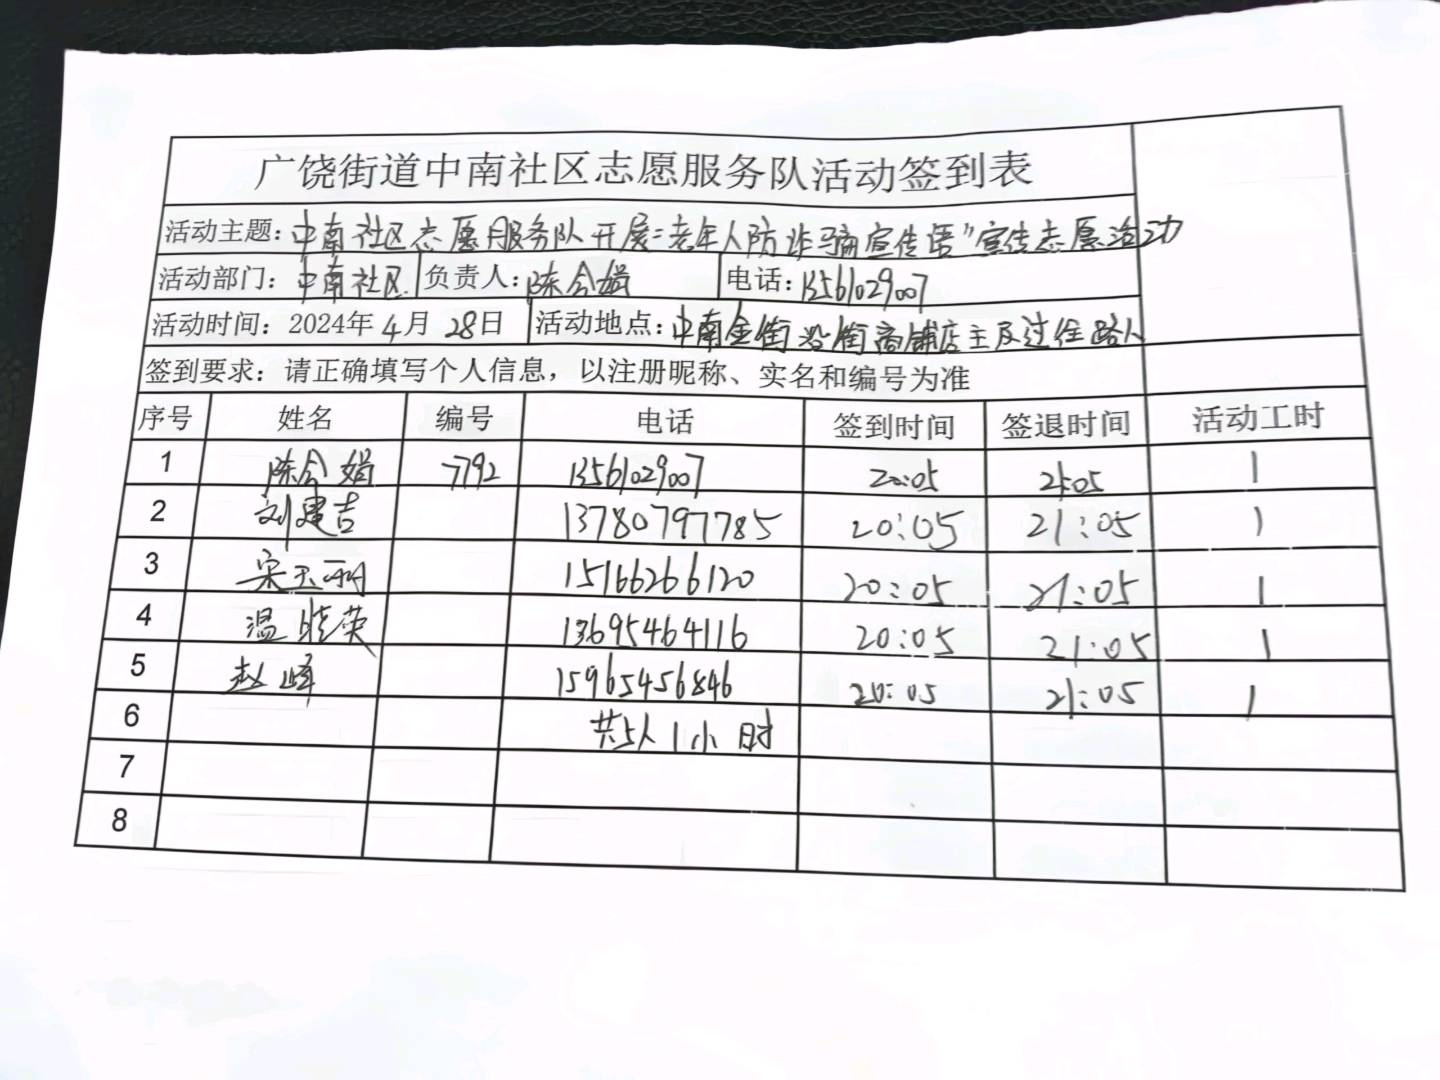 广饶街道中南社区志愿服务队活动签到表
活动主题：中南社区志愿服务队开展"老年人防诈骗宣传语"宣传志愿活动
活动部门：中南社区 负责人：陈会娟 电话：13561029007
活动时间：2024年4月28日 活动地点：中南金街沿街商铺店主及过往路人
签到要求：请正确填写个人信息，以注册昵称、实名和编号为准
序号 姓名 编号 电话 签到时间 签退时间 活动工时
1 陈会娟 7792 13561029007 20:05 21:05 1
2 刘建吉 13780797785 20:05 21:05 1
3 宋玉丽 15166266120 20:05 21:05 1
4 温晓英 13695464116 20:05 21:05 1
5 赵峰 15965456846 20:05 21:05 1
6 共5人1小时
7
8